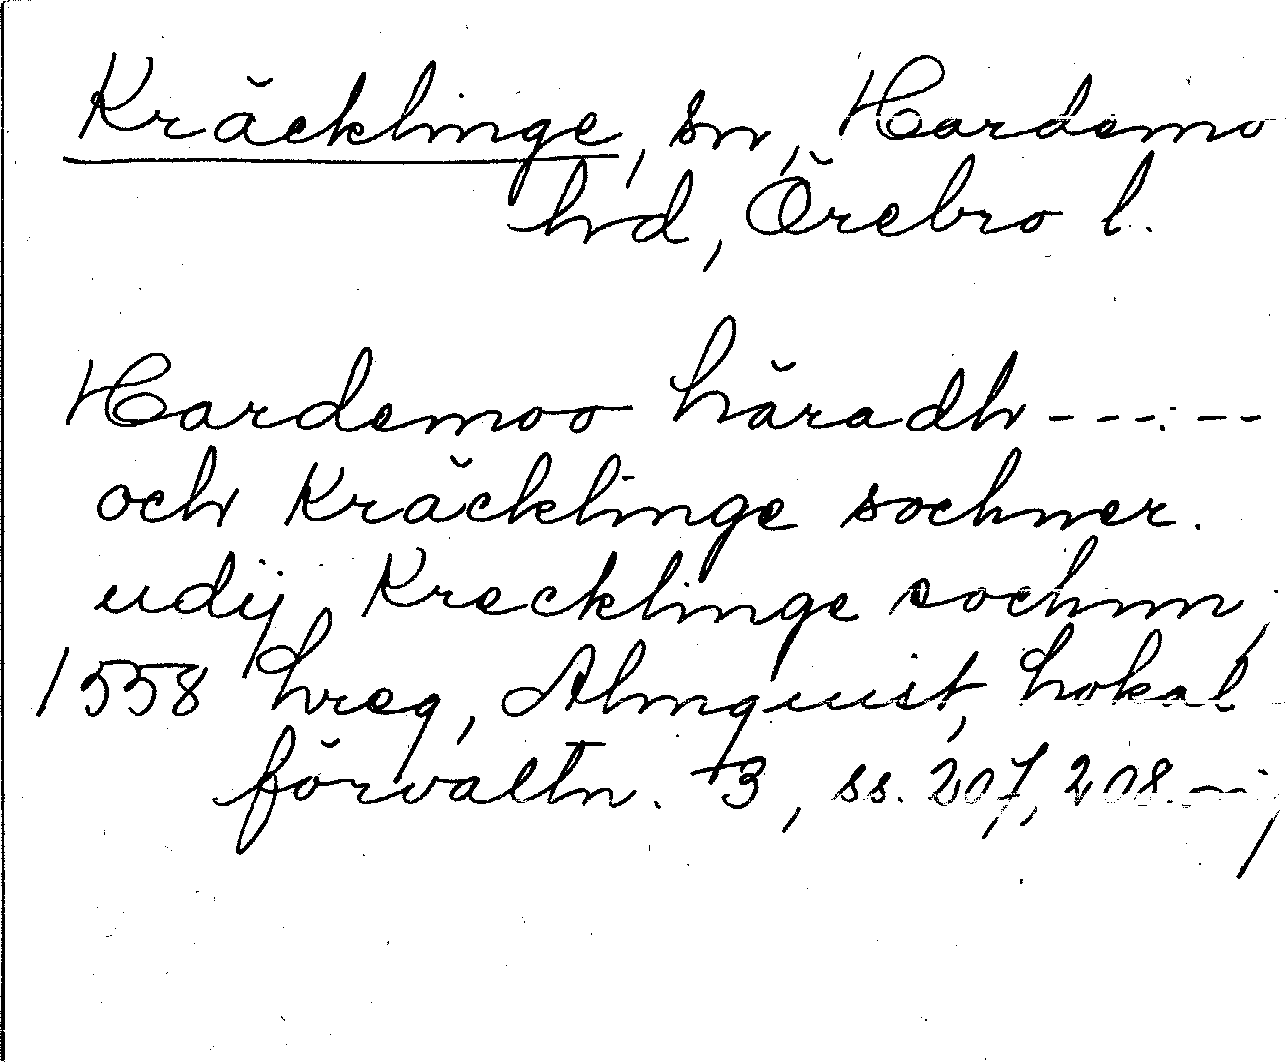 Kräcklinge, sn, Hardemo
hd, Örebro l.
Hardemoo häradh - - - - - -
och Kräcklinge sochner.
udij Krecklinge sochnn,
1558 hreg, Almquist, Lokal
förvaltn. 3, ss. 207, 208. —